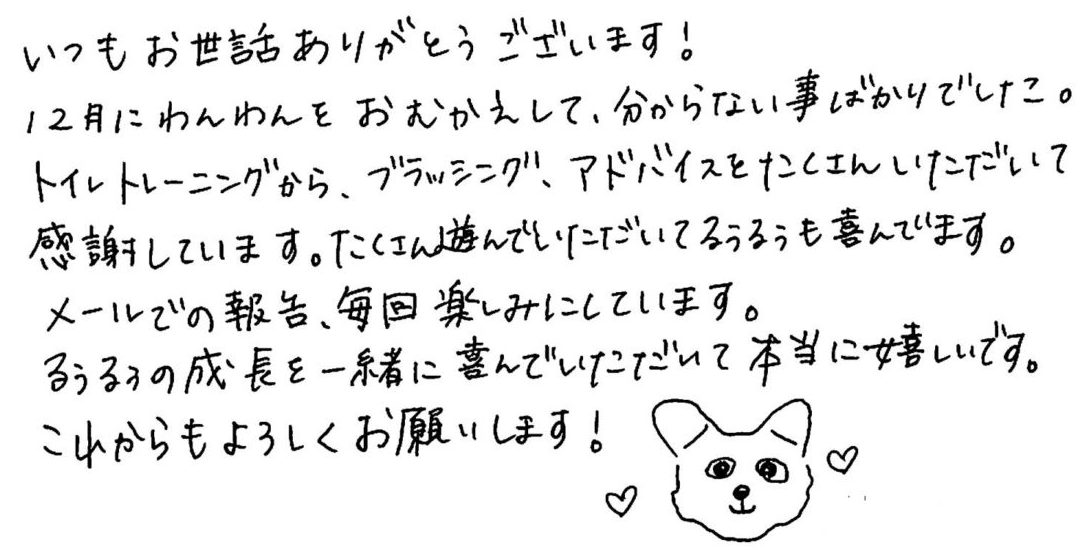 いつもお世話ありがとうございます!
12月にわんわんをおむかえして、分からない事ばかりでした。
トイレトレーニングから、ブラッシング、アドバイスをたくさんいただいて
感謝しています。たくさん遊んでいただいてるぅるぅも喜んでます。
メールでの報告、毎回楽しみにしています。
るぅるぅの成長を一緒に喜んでいただいて本当に嬉しいです。
これからもよろしくお願いします!